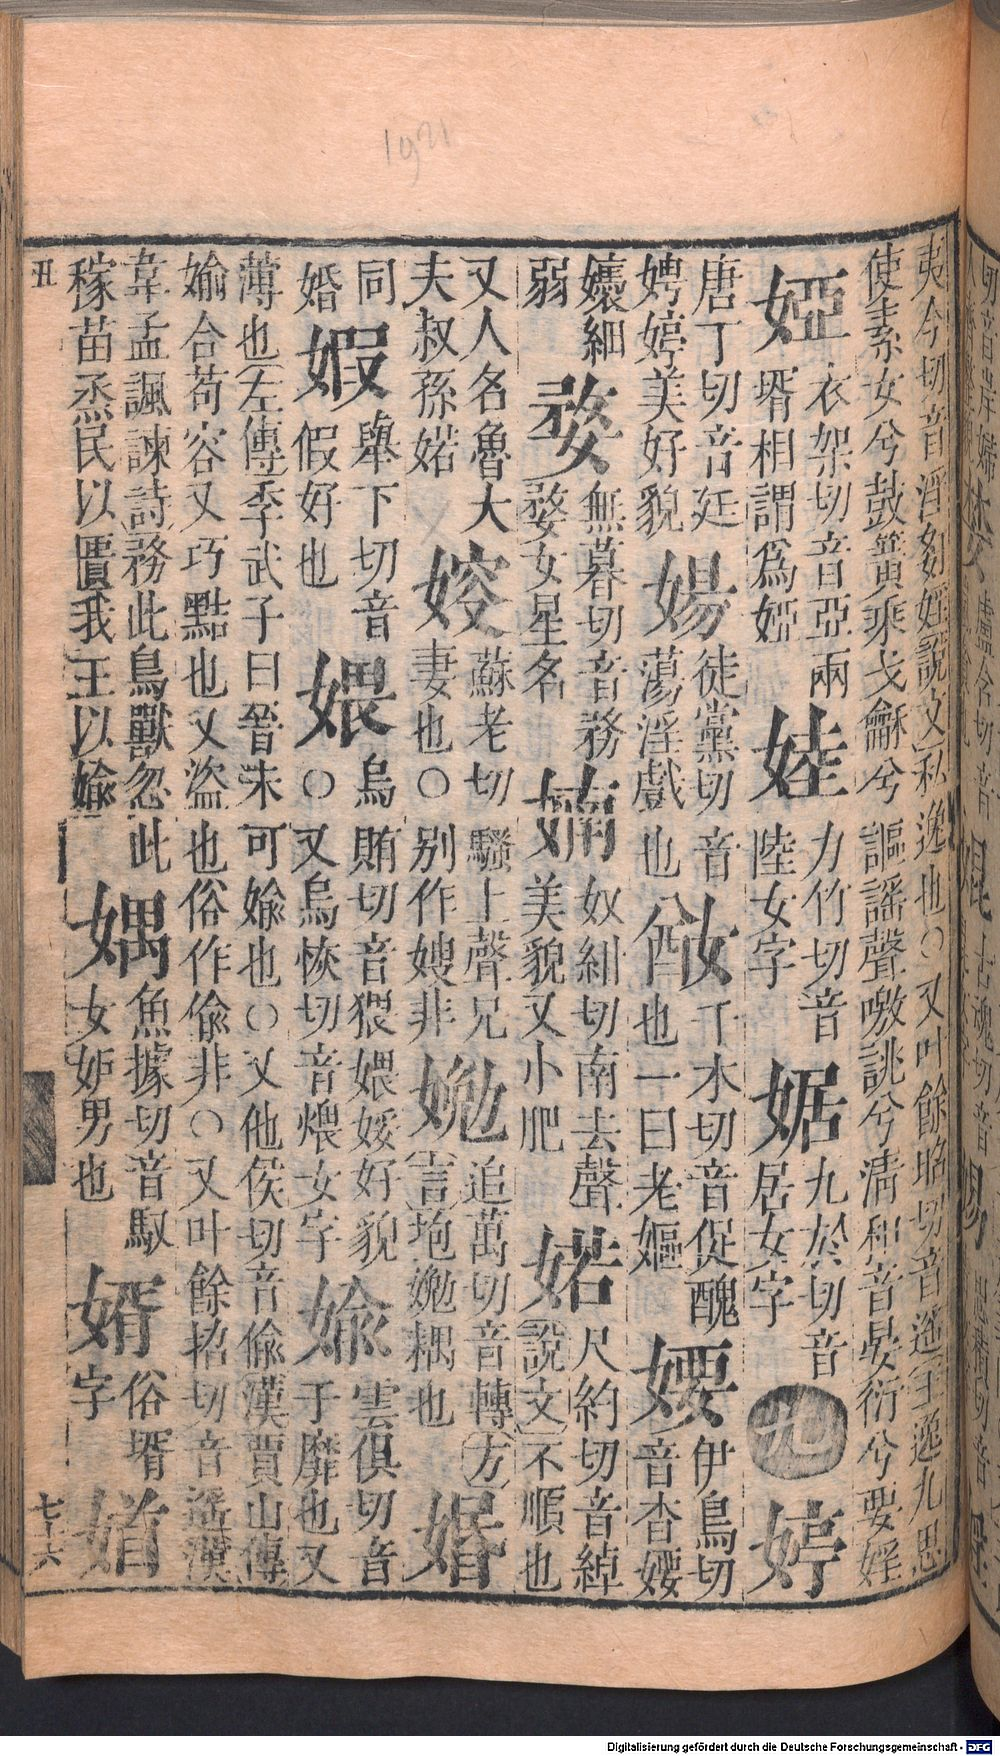 夷今切音淫姦婬說文私逸也○又叶餘昭切音遙王逸九思
使素女兮鼓簧乘戈龢兮謳謠聲噭誂兮淸和音晏衍兮要婬
婭衣架切音亞兩壻相謂爲婭 婈力竹切音陸女字 婮九於切音居女字 九 婷
唐丁切音廷娉婷美好貌 婸徒黨切音蕩淫戲也 𡠗千木切音促醜也一曰老嫗 婹伊鳥切音杳婹
嬝細弱 婺無暮切音務婺女星名 婻奴紺切南去聲美貌又小肥 婼尺約切音綽說文不順也
又人名魯大夫叔孫婼 㛮蘇老切騷上聲兄妻也○别作嫂非 㜃追萬切音轉方言㚿㜃耦也 婚
同婚 婽舉下切音假好也 㛱烏賄切音猥㛱㛂好貌○又烏恢切音煨女字 婾雲俱切音于靡也又
薄也左傳季武子曰晉未可婾也○又他侯切音偸漢賈山傳
婾合苟容又巧黠也又盜也俗作偸非○又叶餘招切音遥漢
韋孟諷諫詩務此鳥獸忽此稼苗烝民以匱我王以婾 媀魚據切音馭女妒男也 婿俗壻字 媘
丑
七十六
1921
Digitalisierung gefördert durch die Deutsche Forschungsgemeinschaft - DFG